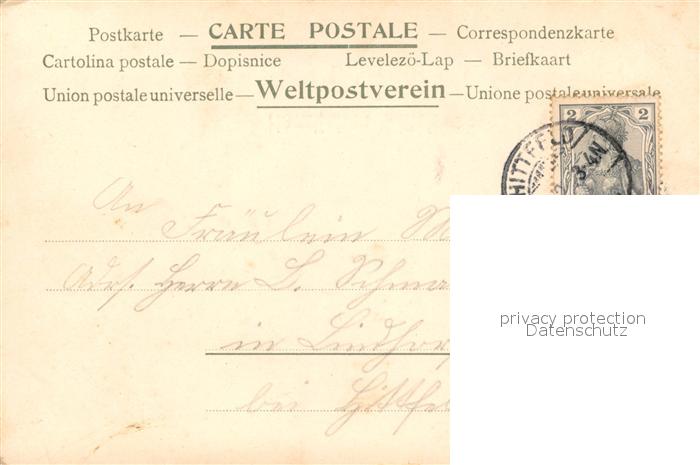 Postkarte — CARTE POSTALE — Correspondenzkarte
Cartolina postale — Dopisnice Levelezö-Lap — Briefkaart
Union postale universelle — Weltpostverein — Unione postale universale
2 2
HITTFELD
3-4N
An
Fräulein M
Adrs. Herrn
in Lindhor
bei Hittfe
privacy protection
Datenschutz